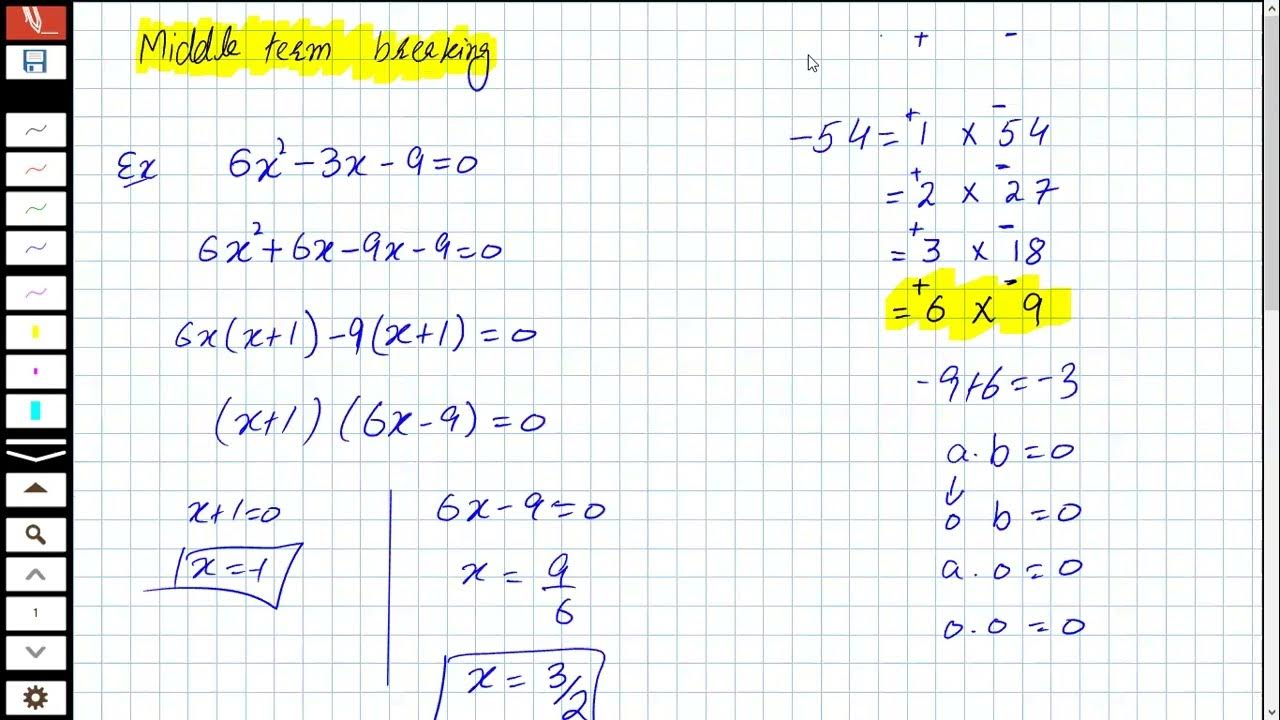 Middle term breaking
Ex 6x² - 3x - 9 = 0
6x² + 6x - 9x - 9 = 0
6x(x+1) - 9(x+1) = 0
(x+1) (6x - 9) = 0
x+1=0
x = -1
6x - 9 = 0
x = 9/6
x = 3/2
+ -
-54 = +1 × -54
= +2 × -27
= +3 × -18
= +6 × -9
-9+6 = -3
a . b = 0
↓
0 b = 0
a . 0 = 0
0 . 0 = 0
1